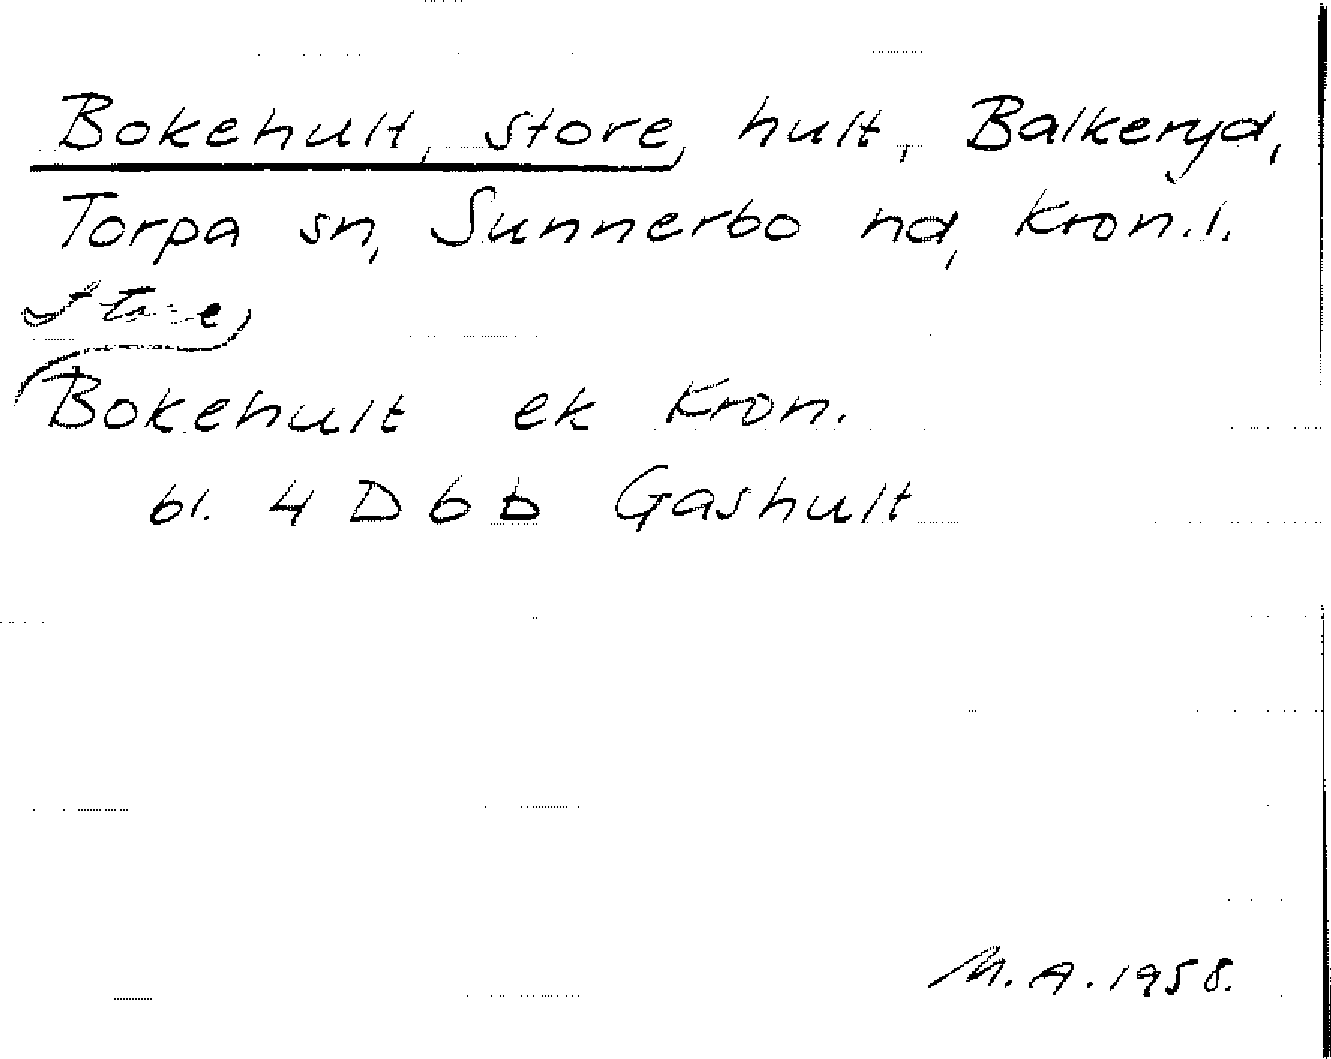 Bokehult, store, hult, Balkeryd,
Torpa sn, Sunnerbo hd, Kron.l.
Store
Bokehult ek Kron.
bl. 4 D 6 b Gashult
M.A. 1958.